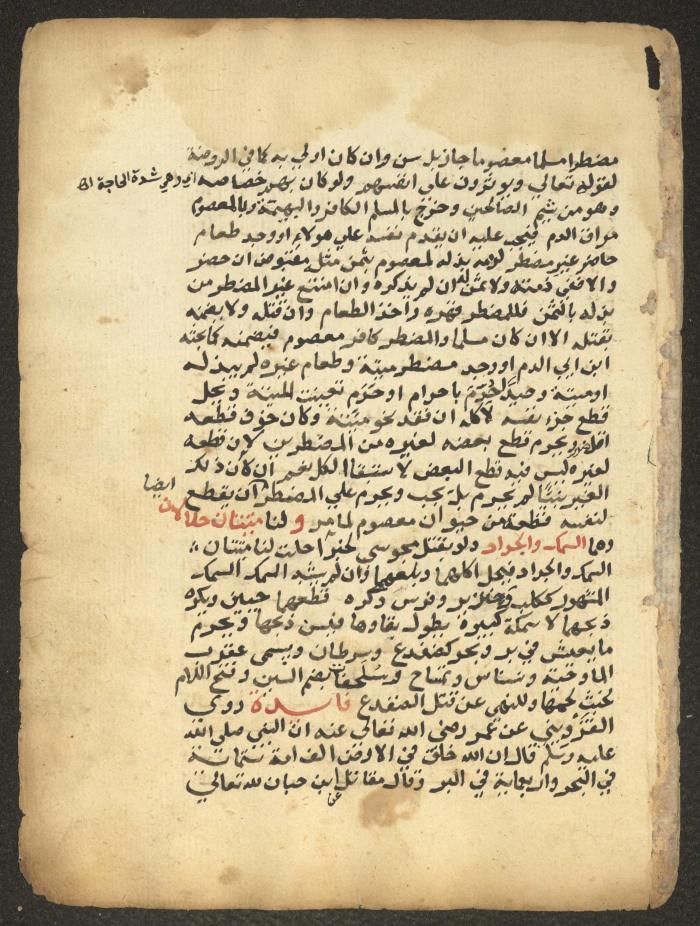 مضطرا مسلما معصوما جاز بل سن وان كان اولي به كما في الروضة
لقوله تعالي ويوثرون علي انفسهم ولو كان بهم خصاصة اي وهي شدة الحاجة اه
وهو من شيم الصالحين وخرج بالمسلم الكافر والبهيمة وبالمعصوم
مراق الدم فيجب عليه ان يقدم نفسه علي هولاء او وجد طعام
حاضر غير مضطر لزمه بذله لمعصوم بثمن مثل مقبوض ان حضر
والا ففي ذمته ولا ثمن له ان لم يذكره وان امتنع غير المضطر من
بذله بالثمن فللمضطر قهره واخذ الطعام وان قتله ولا يضمنه
بقتله الا ان كان مسلما والمضطر كافر معصوم فيضمنه كما بحثه
ابن ابي الدم او وجد مضطر ميتة وطعام غيره لم يبذله
او ميتة وصيدا حرم باحرام او حرم تعينت الميتة ويحل
قطع جزء نفسه لاكله ان فقد نحو ميتة وكان خوف قطعه
اقل ويحرم قطع بعضه لغيره من المضطرين لان قطعه
لغيره ليس فيه قطع البعض لاستبقا الكل نعم ان كان ذلك
الغير نبيا لم يحرم بل يجب ويحرم علي المضطر ان يقطع ايضا
لنفسه قطعة من حيوان معصوم لما مر ولنا ميتتان حلالان
وهما السمك والجراد ولو بقتل مجوسي لخبر احلت لنا ميتتان
السمك والجراد فيحل اكلهما وبلعهما وان لم يشبه السمك السمك
المشهور ككلب وخنزير وفرس وكره قطعهما حيين ويكره
ذبحهما الا سمكة كبيرة يطول بقاوها فيسن ذبحها ويحرم
ما يعيش في بر وبحر كضفدع وسرطان ويسمى عقرب
الما وحية ونسناس وتمساح وسلحفاة بضم السين وفتح اللام
لخبث لحمها وللنهي عن قتل الضفدع فايدة روى
القزويني عن عمر رضي الله تعالي عنه ان النبي صلى الله
عليه وسلم قال ان الله خلق في الارض الف امة ستماية
في البحر واربعماية في البر وقال مقاتل ابن حبان لله تعالي